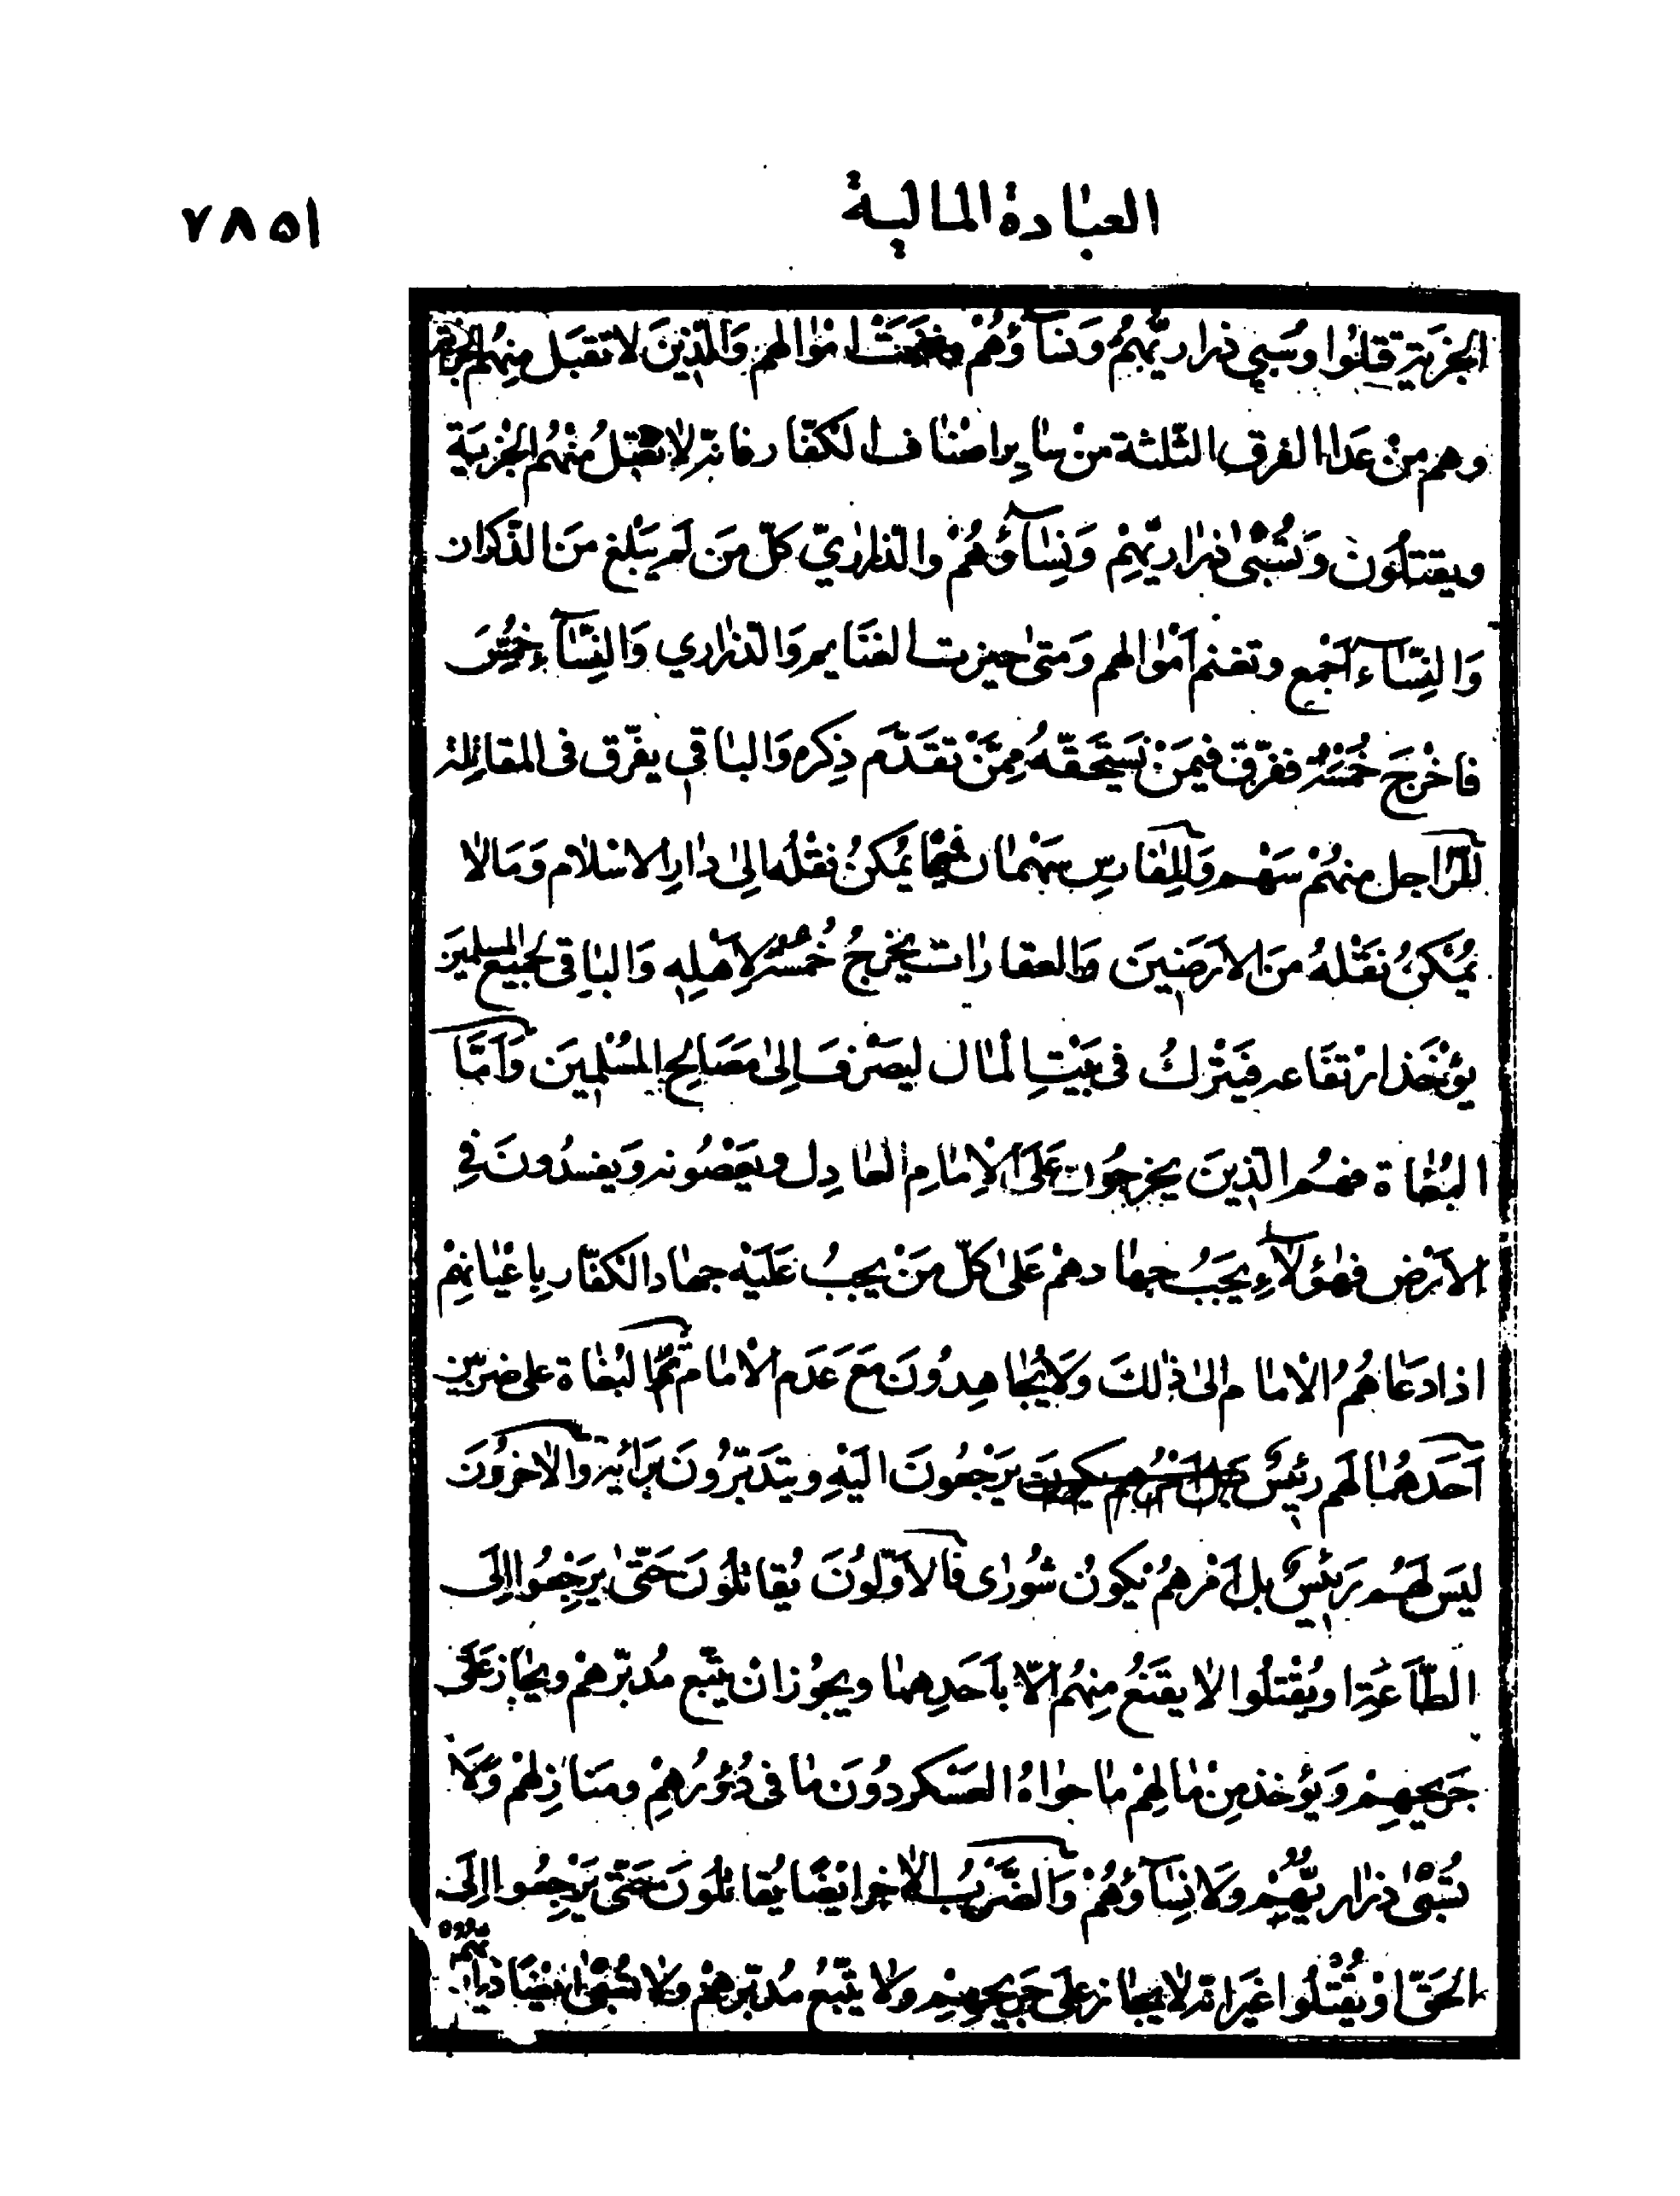 العبادة المالية
٧٨٥١
الجزية قتلوا وسبي ذراريّهم ونسآؤهم وغنمت اموالهم والذين لا تقبل منهم الجزية
وهم من عدا الفرق الثلثة من ساير اصناف الكفّار فانه لا تقبل منهم الجزية
ويقتلون وتسبى ذراريّهم ونسآؤهم والذراريّ كلّ من لم يبلغ من الذكران
والنسآء اجمع وتغنم اموالهم ومتى حيزت الغنايم والذراري والنسآء خمّس
فاخرج خمسه ففرّق فيمن يستحقّه ممّن تقدّم ذكره والباقي يفرّق في المقاتلة
للرّاجل منهم سهم وللفارس سهمان فيما يمكن نقله الى دار الاسلام وما لا
يمكن نقله من الارضين والعقارات يخرج خمسه لاهله والباقي لجميع المسلمين
يؤخذ ارتفاعه فيترك في بيت المال ليصرف الى مصالح المسلمين وامّا
البغاة فهم الذين يخرجون على الامام العادل ويعصونه ويفسدون في
الارض فهؤلآء يجب جهادهم على كلّ من يجب عليه جهاد الكفّار باعيانهم
اذا دعاهم الامام الى ذلك ولا يجاهدون مع عدم الامام ثمّ البغاة على ضربين
احدهما لهم رئيس يرجعون اليه ويتدبّرون برائه والاخرون
ليس لهم رئيس بل امرهم يكون شورى فالاوّلون يقاتلون حتّى يرجعوا الى
الطّاعة او يقتلوا لا يقنع منهم الّا باحدهما ويجوز ان يتّبع مدبرهم ويجاز على
جريحهم ويؤخذ من مالهم ما حواه العسكر دون ما في دؤرهم ومنازلهم ولا
تسبى ذراريّهم ولا نسآؤهم والضّرب الاخر ايضا يقاتلون حتّى يرجعوا الى
الحقّ او يقتلوا غير انه لا يجاز على جريحهم ولا يتّبع مدبرهم ولا تسبى ايضا ذراريهم